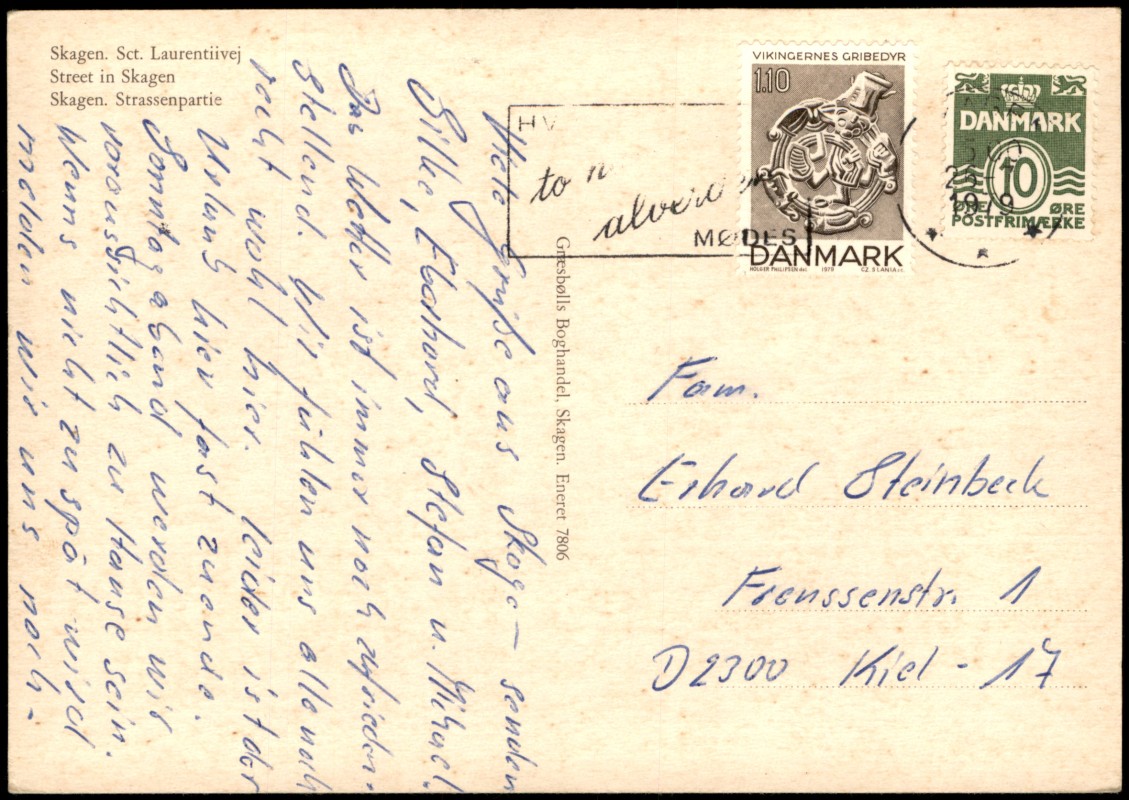 Skagen. Sct. Laurentiivej
Street in Skagen
Skagen. Strassenpartie
Viele Grüße aus Skage- senden
Silke, Eberhard, Stefan u. Mihael.
Das Wetter ist immer noch zufrieden-
stellend. Wir fühlen uns alle noch
recht wohl hier. leider ist der
Urlaub hier fast zuende.
Sonntagabend werden wir
voraussichtlich zu Hause sein.
Wenns nicht zu spät wird
melden wir uns noch-
Græsbølls Boghandel, Skagen. Eneret 7806
HV
to n
alverden
MØDES
VIKINGERNES GRIBEDYR
1.10
DANMARK
HOLGER PHILIPSEN del. 1979 CZ. SLANIA sc.
DANMARK
10
ØRE ØRE
POSTFRIMÆRKE
1979
Fam.
Erhard Steinbeck
Frenssenstr. 1
D2300 Kiel - 17